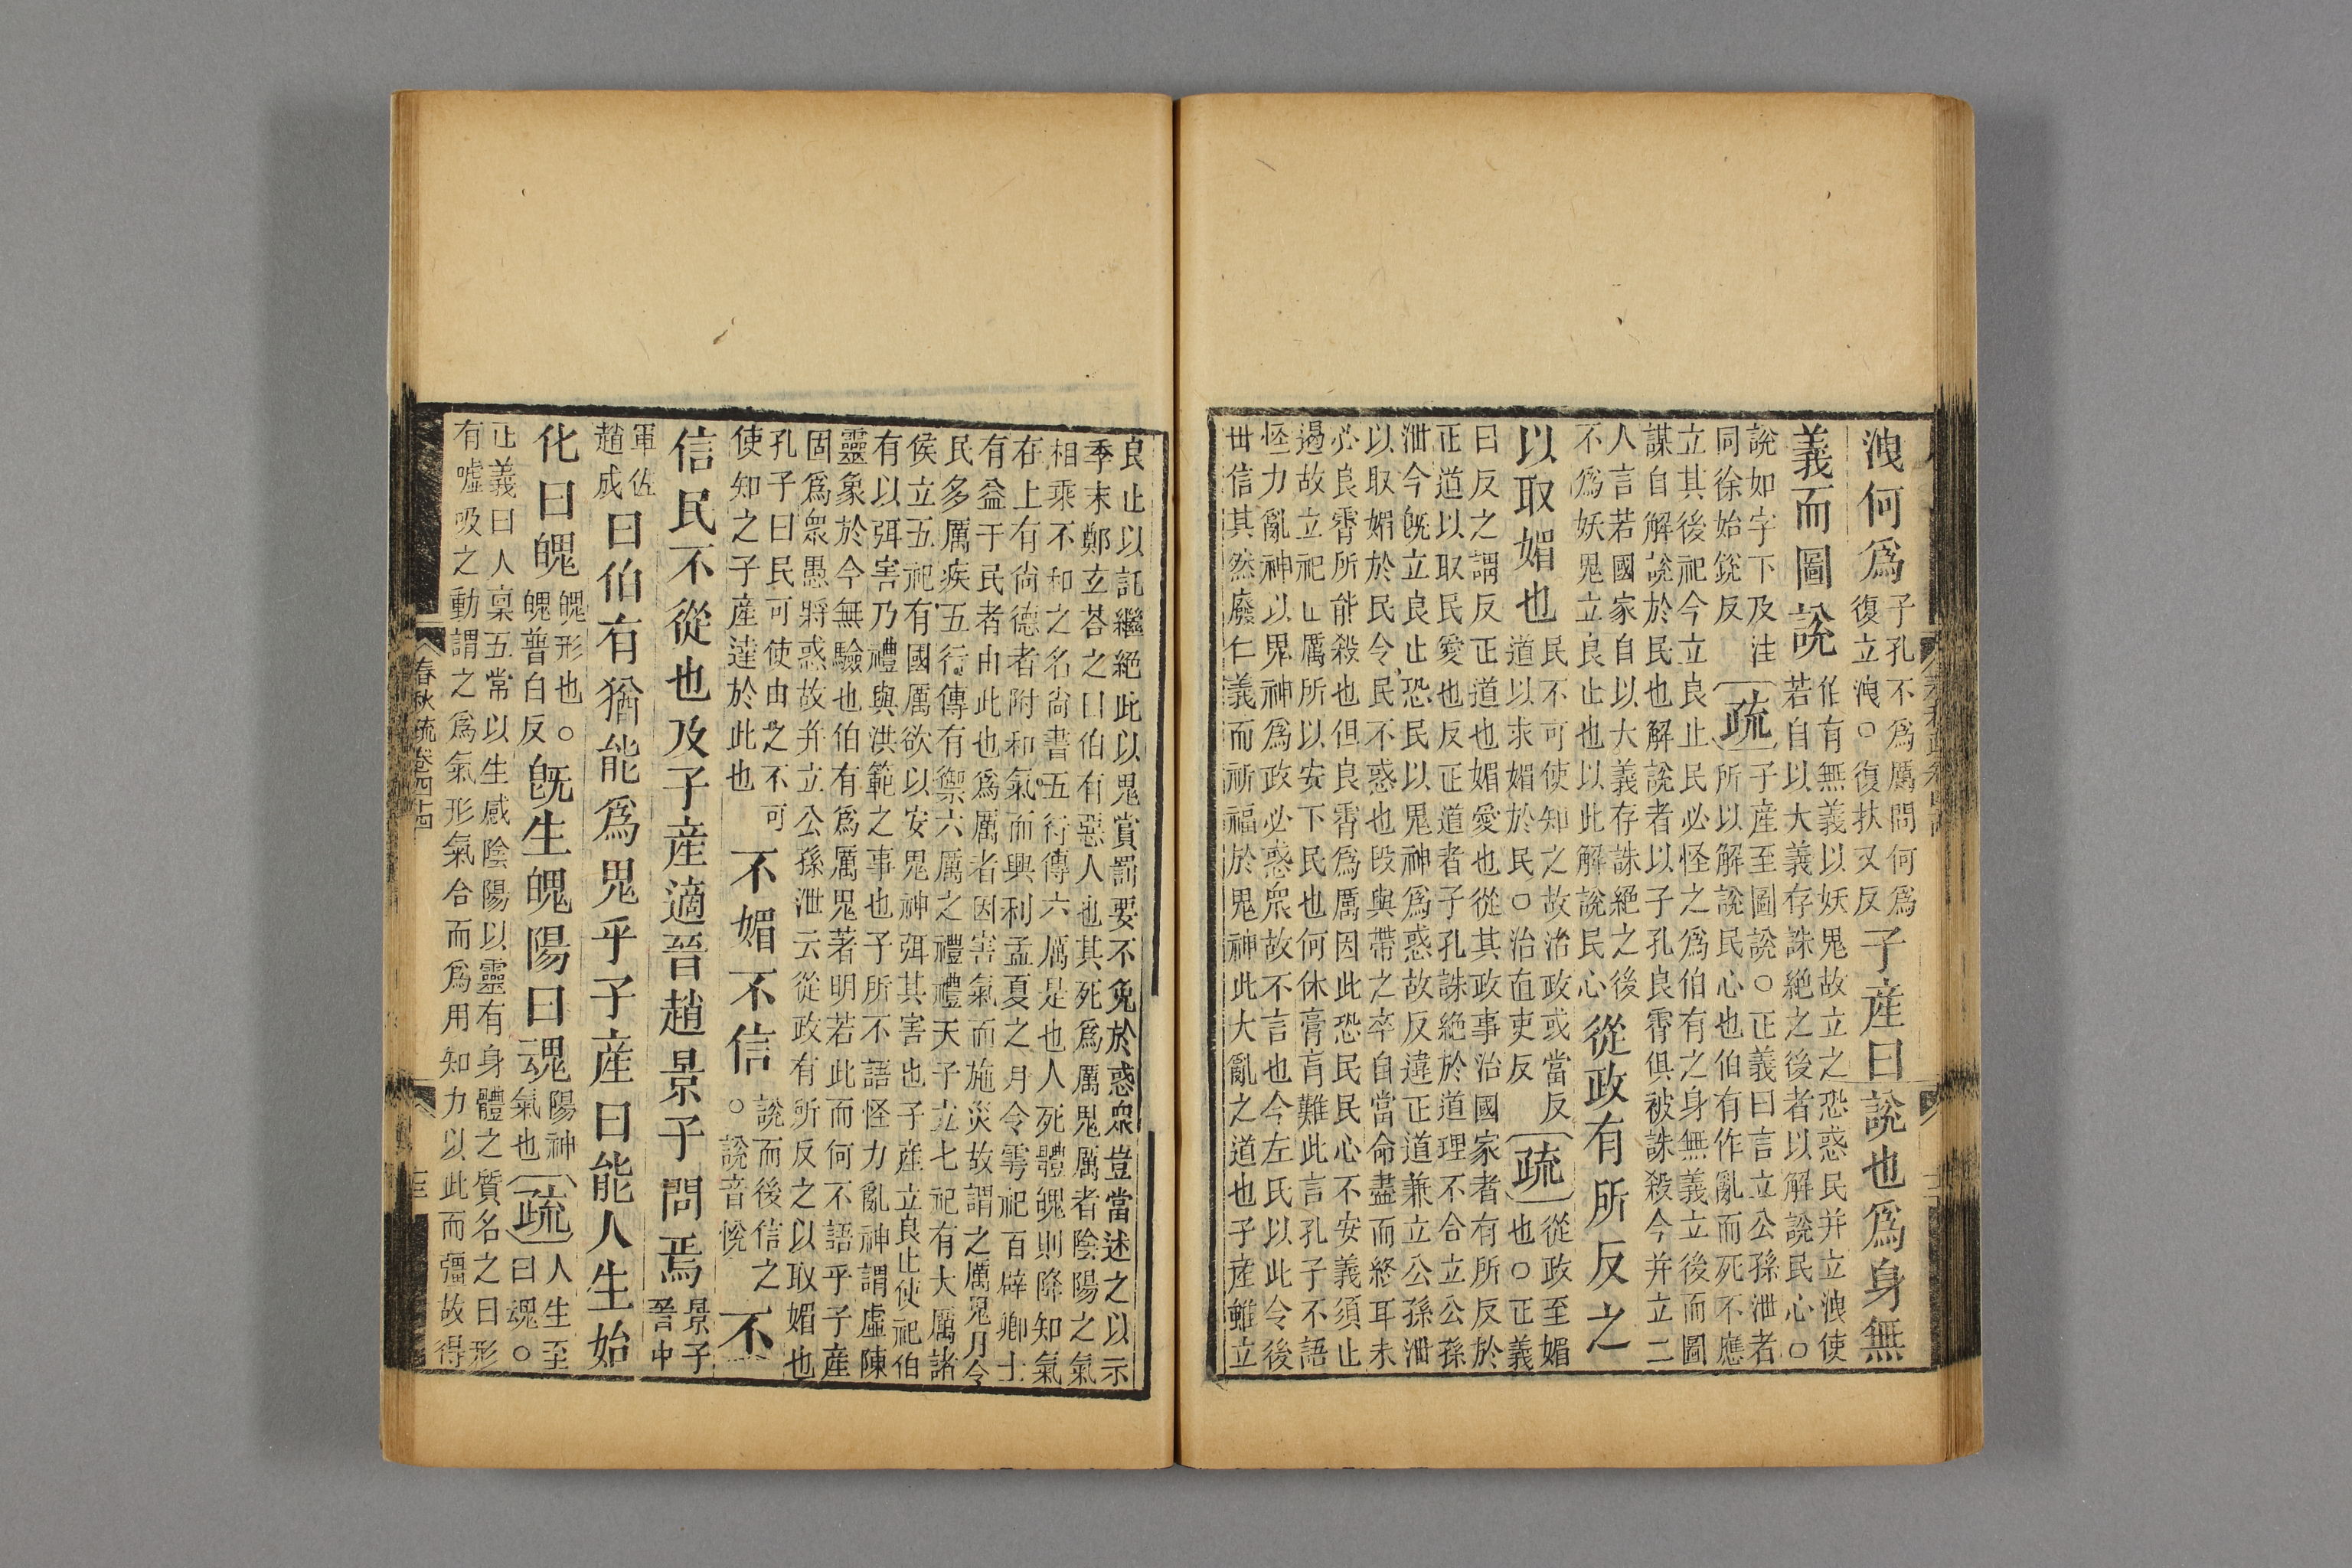 洩何爲子孔不爲厲問何爲復立洩。復扶又反子産曰說也爲身無
義而圖說伯有無義以妖鬼故立之恐惑民并立洩使若自以大義存誅絶之後者以解說民心。
說如字下及注同徐始銳反疏子産至圖說。正義曰言立公孫泄者所以解說民心也伯有作亂而死不應
立其後祀今立良止民必怪之爲伯有之身無義立後而圖
謀自解說於民也解說者以子孔良霄俱被誅殺今并立二
人言若國家自以大義存誅絶之後
不爲妖鬼立良止也以此解說民心從政有所反之
以取媚也民不可使知之故治政或當反道以求媚於民。治直吏反疏從政至媚也。正義
曰反之謂反正道也媚愛也從其政事治國家者有所反於
正道以取民愛也反正道者子孔誅絶於道理不合立公孫
泄今旣立良止恐民以鬼神爲惑故反違正道兼立公孫泄
以取媚於民令民不惑也段與帶之卒自當命盡而終耳未
必良霄所能殺也但良霄爲厲因此恐民民心不安義須止
遏故立祀止厲所以安下民也何休膏肓難此言孔子不語
怪力亂神以鬼神爲政必惑衆故不言也今左氏以此令後
世信其然廢仁義而祈福於鬼神此大亂之道也子産雖立
良止以託繼絶此以鬼賞罰要不免於惑衆豈當述之以示
季末鄭玄荅之曰伯有惡人也其死爲厲鬼厲者陰陽之氣
相乘不和之名尚書五行傳六厲是也人死體魄則降知氣
在上有尚德者附和氣而興利孟夏之月令雩祀百辟卿士
有益于民者由此也爲厲者因害氣而施災故謂之厲鬼月令
民多厲疾五行傳有禦六厲之禮禮天子立七祀有大厲諸
侯立五祀有國厲欲以安鬼神弭其害也子産立良止使祀伯
有以弭害乃禮與洪範之事也子所不語怪力亂神謂虛陳
靈象於今無驗也伯有爲厲鬼著明若此而何不語乎子産
固爲衆愚將惑故并立公孫泄云從政有所反之以取媚也
孔子曰民可使由之不可
使知之子産達於此也不媚不信說而後信之。說音悅不
信民不從也及子産適晉趙景子問焉景子晉中
軍佐趙成曰伯有猶能爲鬼乎子産曰能人生始
化曰魄魄形也。魄普白反旣生魄陽曰魂陽神氣也疏人生至曰魂。
正義曰人稟五常以生感陰陽以靈有身體之質名之曰形
有噓吸之動謂之爲氣形氣合而爲用知力以此而彊故得
春秋疏卷四十四
十三